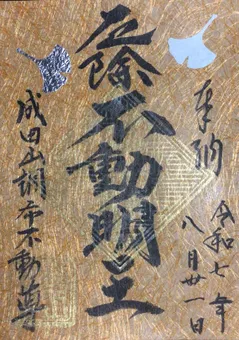 奉納
令和七年
八月廿一日
厄除
不動明王
成田山調布不動尊